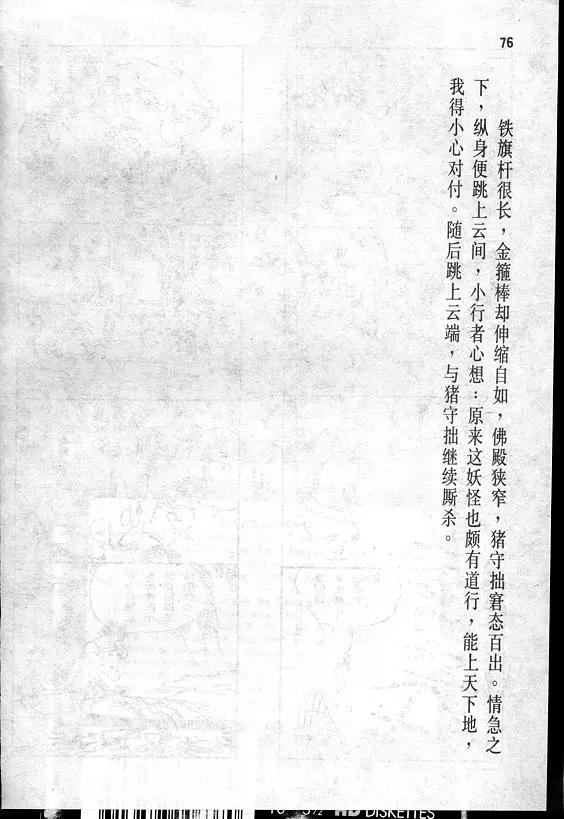 76
铁旗杆很长，金箍棒却伸缩自如，佛殿狭窄，猪守拙窘态百出。情急之
下，纵身便跳上云间，小行者心想：原来这妖怪也颇有道行，能上天下地，
我得小心对付。随后跳上云端，与猪守拙继续厮杀。
HD DISKETTES